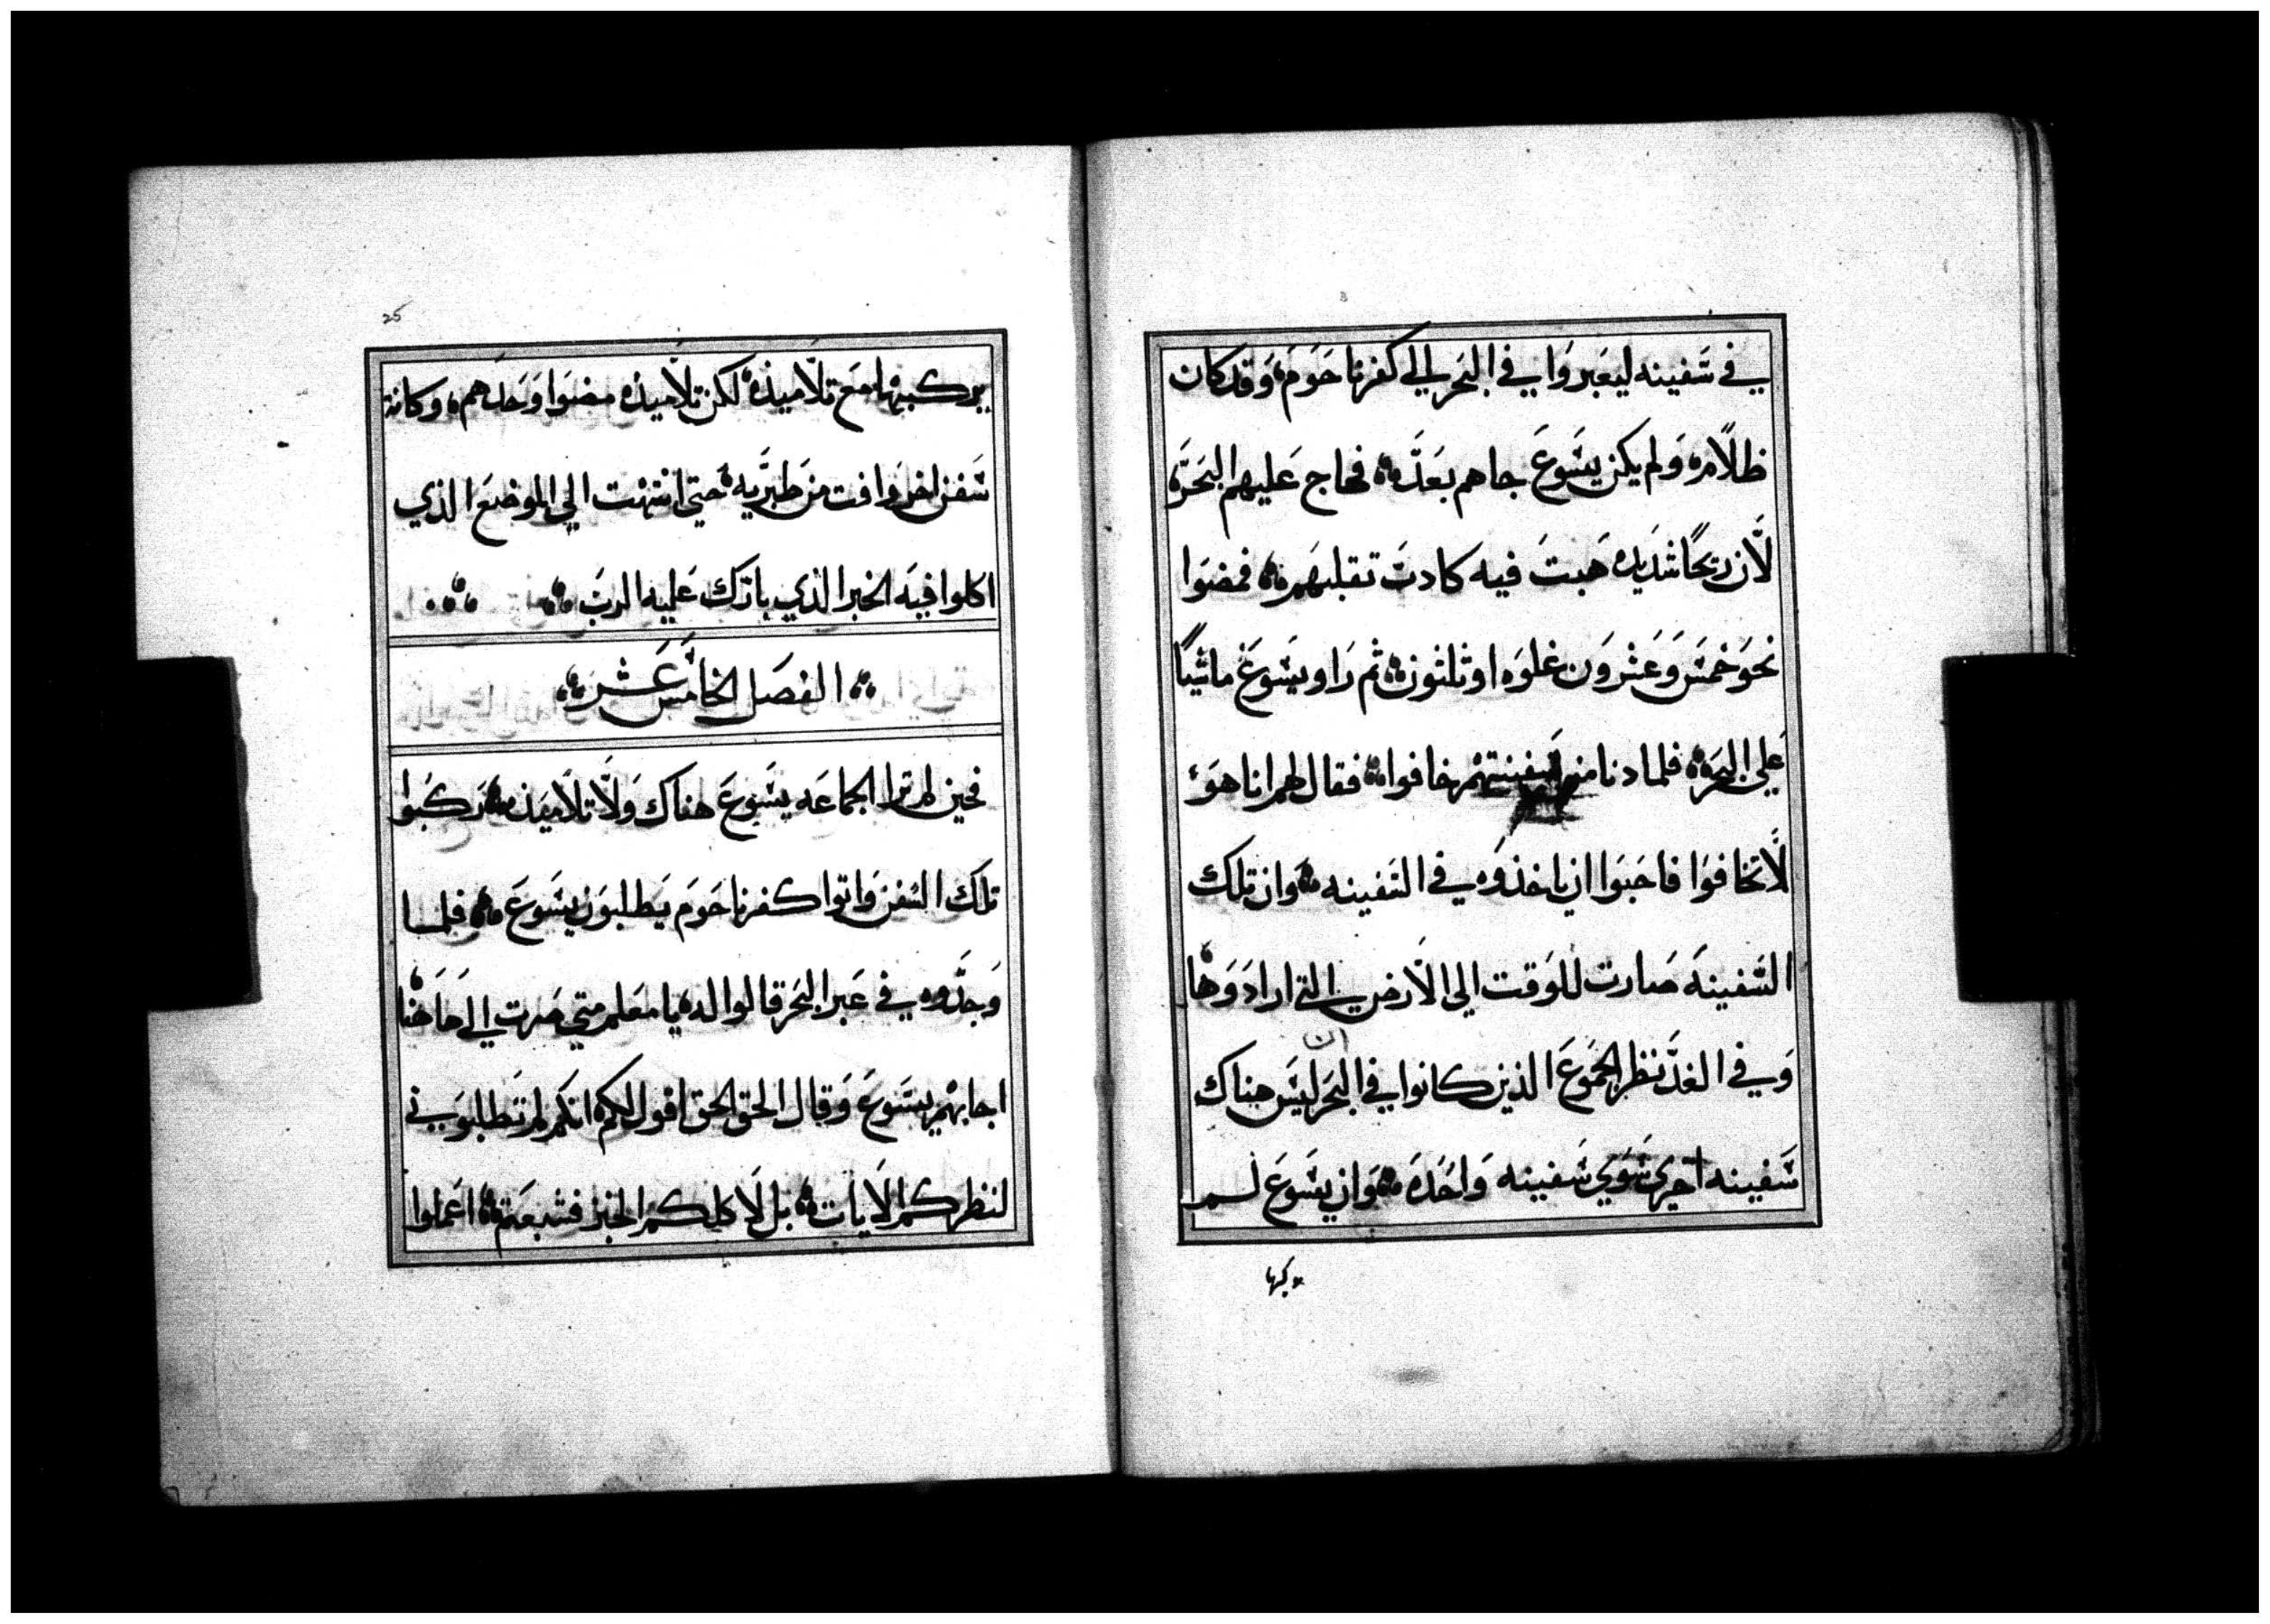 في سفينه ليعبروا في البحر الي كفرناحوم، وقد كان
ظلامه ولم يكن يسوع جاهم بعده فهاج عليهم البحره
لان ريحًا شديده هبت فيه كادت تقلبهم فمضوا
نحو خمس وعشرون غلوه او ثلثون ثم راو يسوع ماشيًا
علي البحره فلما دنا من سفينتهم خافوا فقال لهم انا هو
لا تخافوا فاحبوا ان ياخذوه في السفينه وان تلك
السفينه صارت للوقت الي الارض التي ارادوها
ان
وفي الغد نظر الجموع الذين كانوا في البحر ليس هناك
سفينه اخري سوي سفينه واحده وان يسوع لم
يركبها
25
يركبها مع تلاميذه لكن تلاميذه مضوا وحدهم، وكانة
سفن اخر وافت من طبريه حتي انتهت الي الموضع الذي
اكلوا فيه الخبز الذي بارك عليه الرب
الفصل الخامس عشر
فحين لم ترا الجماعه يسوع هناك ولا تلاميذه ركبوا
تلك السفن واتوا كفرناحوم يطلبون يسوع فلما
وجدوه في عبر البحر قالوا له يا معلم متي صرت الي هاهنا
اجابهم يسوع وقال الحق الحق اقول لكم انكم لم تطلبوني
لنظركم الايات بل لاكلكم الخبز فشبعتم اعملوا